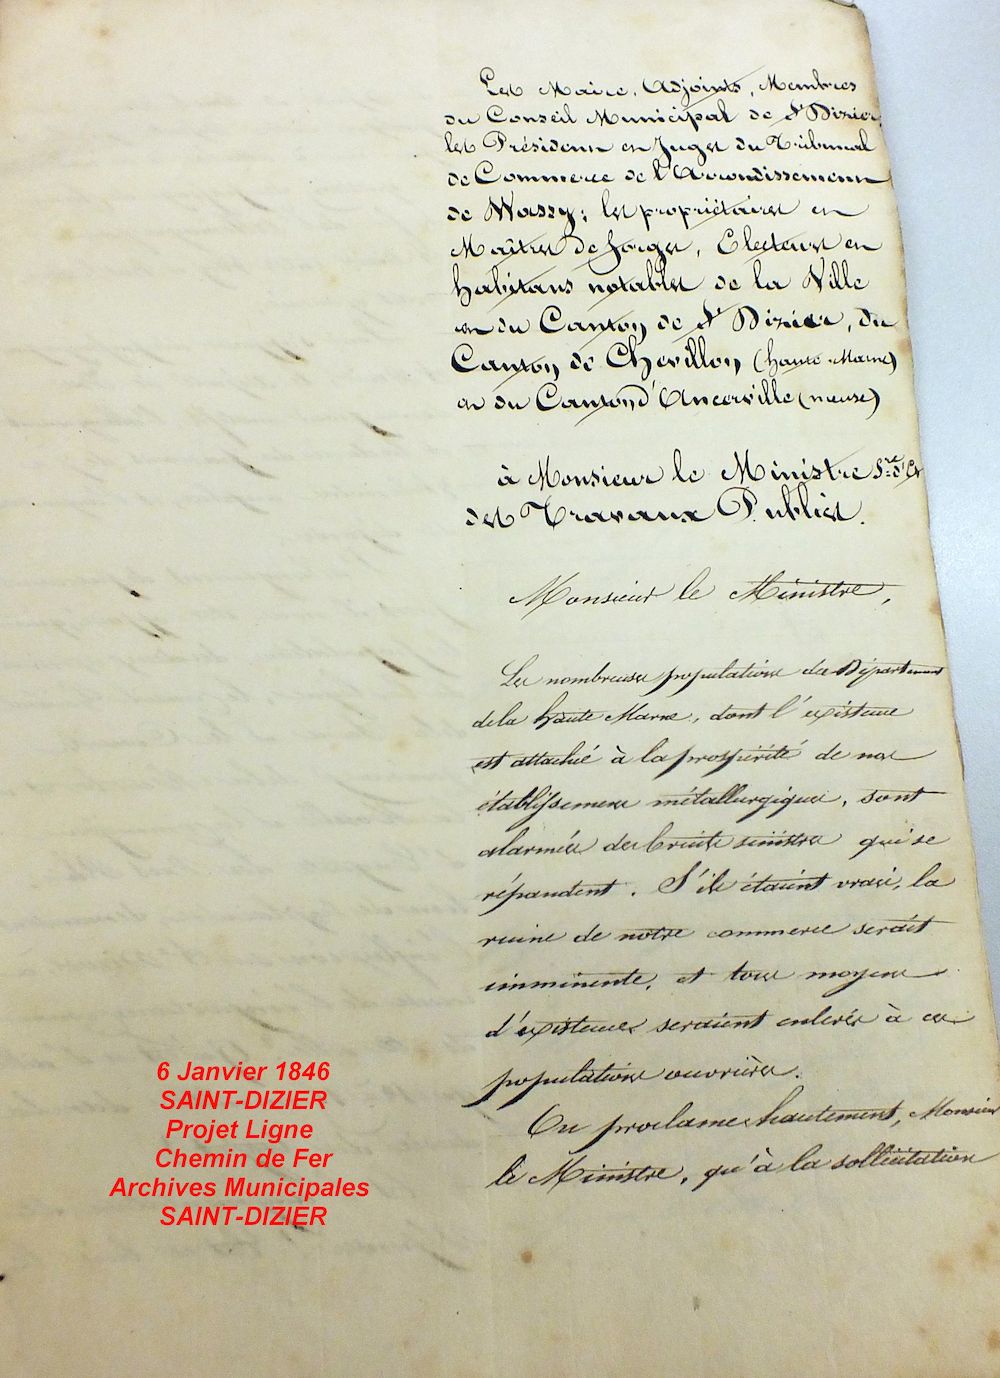 Les Maire, Adjoints, Membres
du Conseil Municipal de St Dizier,
les Président et Juges du Tribunal
de Commerce de l'Arrondissement
de Wassy; les propriétaires et
Maîtres de forges, Electeurs et
habitans notables de la Ville
et du Canton de St Dizier, du
Canton de Chevillon (haute Marne)
et du Canton d'Ancerville (meuse)
à Monsieur le Ministre Sre d'Et
des Travaux Publics.
Monsieur le Ministre,
Les nombreuses populations du Département
de la haute Marne, dont l'existence
est attachée à la prospérité de nos
établissemens métallurgiques, sont
alarmées des bruits sinistres qui se
répandent. S'ils étaient vrais, la
ruine de notre commerce serait
imminente, et tous moyens
d'existence seraient enlevés à ces
populations ouvrières.
On proclame hautement, Monsieur
le Ministre, qu'à la sollicitation
6 Janvier 1846
SAINT-DIZIER
Projet Ligne
Chemin de Fer
Archives Municipales
SAINT-DIZIER